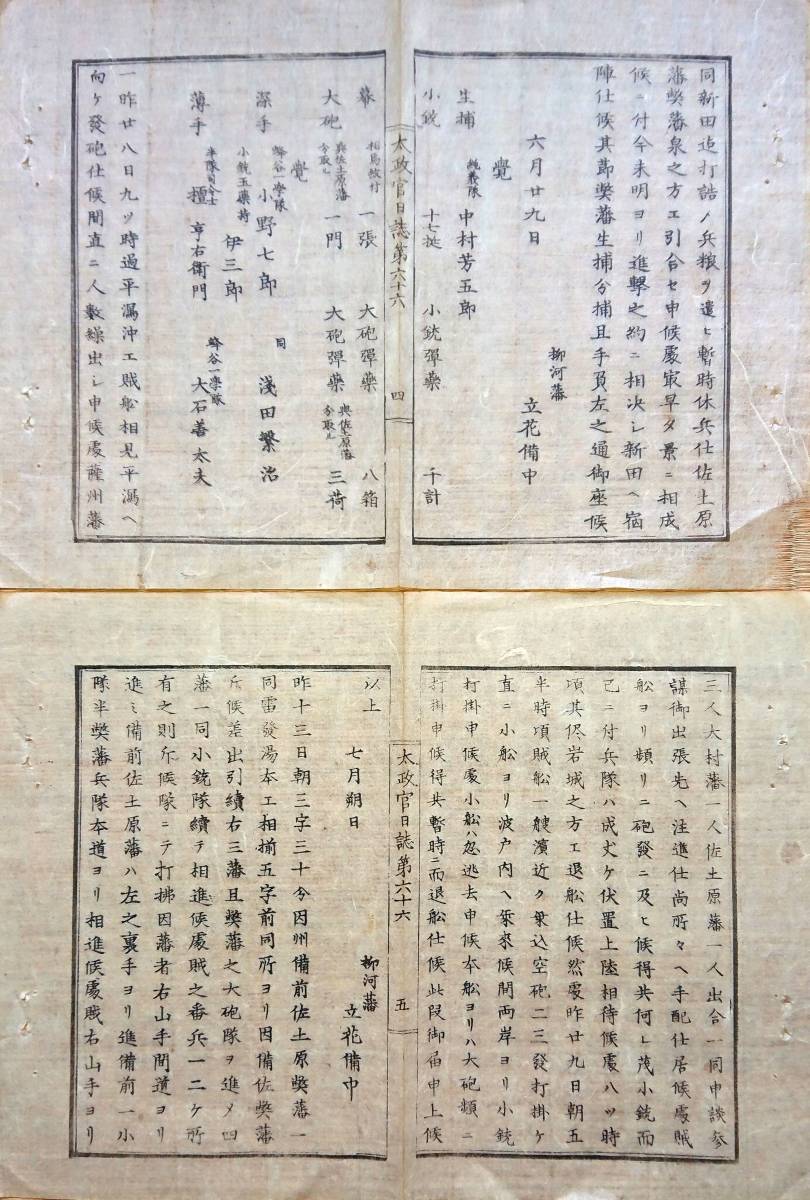 同新田迄打詰メ兵粮ヲ遣ヒ暫時休兵仕佐土原
藩弊藩泉之方エ引合セ申候處最早夕景ニ相成
候ニ付今未明ヨリ進擊之約ニ相决シ新田ヘ宿
陣仕候其節弊藩生捕分捕且手負左之通御座候
柳河藩
六月廿九日 立花備中
覺
生捕 純義隊 中村芳五郎
小銃 十七挺 小銃彈藥 千計
太政官日誌第六十六 四
幕 相馬紋付 一張 大砲彈藥 八箱
大砲 與佐土原藩分取ル 一門 大砲彈藥 與佐土原藩分取ル 三荷
覺
深手 蜂谷一學隊 小野七郎 同 淺田繁治
小銃玉藥持 伊三郎
薄手 半隊司令士 檀亨右衛門 蜂谷一學隊 大石善太夫
一昨廿八日九ツ時過平潟沖エ賊船相見平潟ヘ
向ケ發砲仕候間直ニ人數繰出シ申候處薩州藩
三人大村藩一人佐土原藩一人出合一同申談參
謀御出張先ヘ注進仕尚所々ヘ手配仕居候處賊
船ヨリ頻リニ砲發ニ及ヒ候得共何レ茂小銃而
已ニ付兵隊ハ成丈ケ伏置上陸相待候處八ツ時
頃其侭岩城之方エ退船仕候然處昨廿九日朝五
半時頃賊船一艘濱近ク乗込空砲二三發打掛ケ
直ニ小船ヨリ波戸内ヘ乗来候間両岸ヨリ小銃
打掛申候處小船ハ忽逃去申候本船ヨリハ大砲頻ニ
打掛申候得共暫時ニ而退船仕候此段御届申上候
太政官日誌第六十六 五
以上
柳河藩
七月朔日 立花備中
昨十三日朝三字三十分因州備前佐土原弊藩一
同雷發湯本エ相揃五字前同所ヨリ因備佐弊藩
斥候差出引續右三藩且弊藩之大砲隊ヲ進メ四
藩一同小銃隊續テ相進候處賊之番兵一二ケ所
有之則斥候隊ニテ打拂因藩者右山手間道ヨリ
進ミ備前佐土原藩ハ左之裏手ヨリ進備前一小
隊半弊藩兵隊本道ヨリ相進候處賊右山手ヨリ